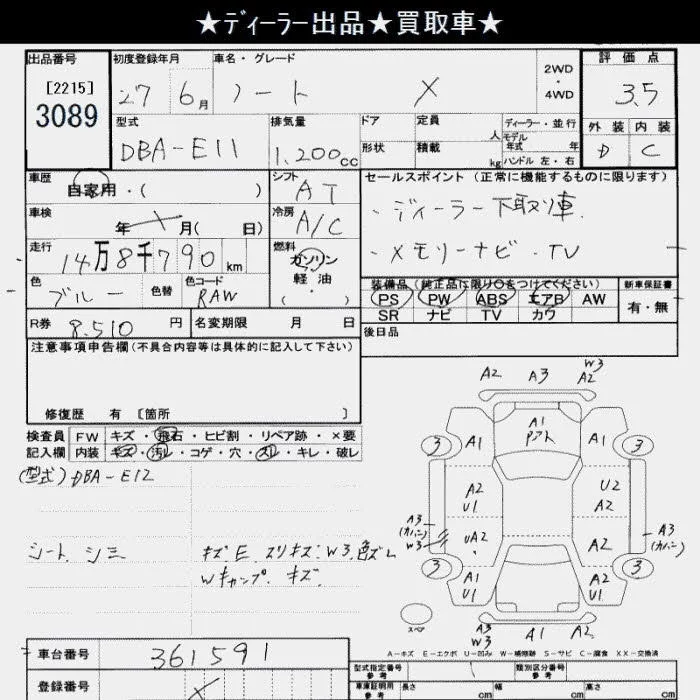 ★ディーラー出品★買取車★
出品番号 初度登録年月 車名・グレード 2WD・4WD 評価点
[2215] 3089 27 6月 ノート X 3.5
型式 排気量 ドア 定員 人 ディーラー・並行 外装 内装
モデル年式 年式
DBA-E11 1,200cc 形状 積載 kg ハンドル 左・右 D C
車歴 自家用・( ) シフト AT セールスポイント (正常に機能するものに限ります)
車検 年 月( 日) 冷房 A/C ・ディーラー下取り車.
走行 14万8千790km 燃料 ガソリン・軽油 ( ・ ) ・メモリーナビ・TV
色 ブルー 色替 色コード RAW
装備品 (純正品に限り○をつけてください) 新車保証書
PS PW ABS エアB AW 有・無
SR ナビ TV カワ
R券 8.510円 名変期限 月 日 後日品
注意事項申告欄(不具合内容等は具体的に記入して下さい)
修復歴 有 [箇所 ]
検査員 FW キズ・飛石・ヒビ割・リペア跡・×要
記入欄 内装 キズ・汚レ・コゲ・穴・スレ・キレ・破レ
(型式)DBA-E12
シート シミ キズE.スリキズ.W3.色ズレ
Wキャップ.キズ.
A2 A3 W3 A2
A1 Pアト
3 A1 A1 3
A2 U1 U2 A2
A3 (カバー) W3 UA2 A2 A3 (カバー)
3 A1 U1 A2 U1 3
スペア A3 W3 A1 A2
A-キズ E-エクボ U-凹み W-補修跡 S-サビ C-腐食 XX-交換済
車台番号 361591
登録番号
型式指定番号 参考 類別区分番号 参考
車庫証明用 参考 長さ cm 幅 cm 高さ cm